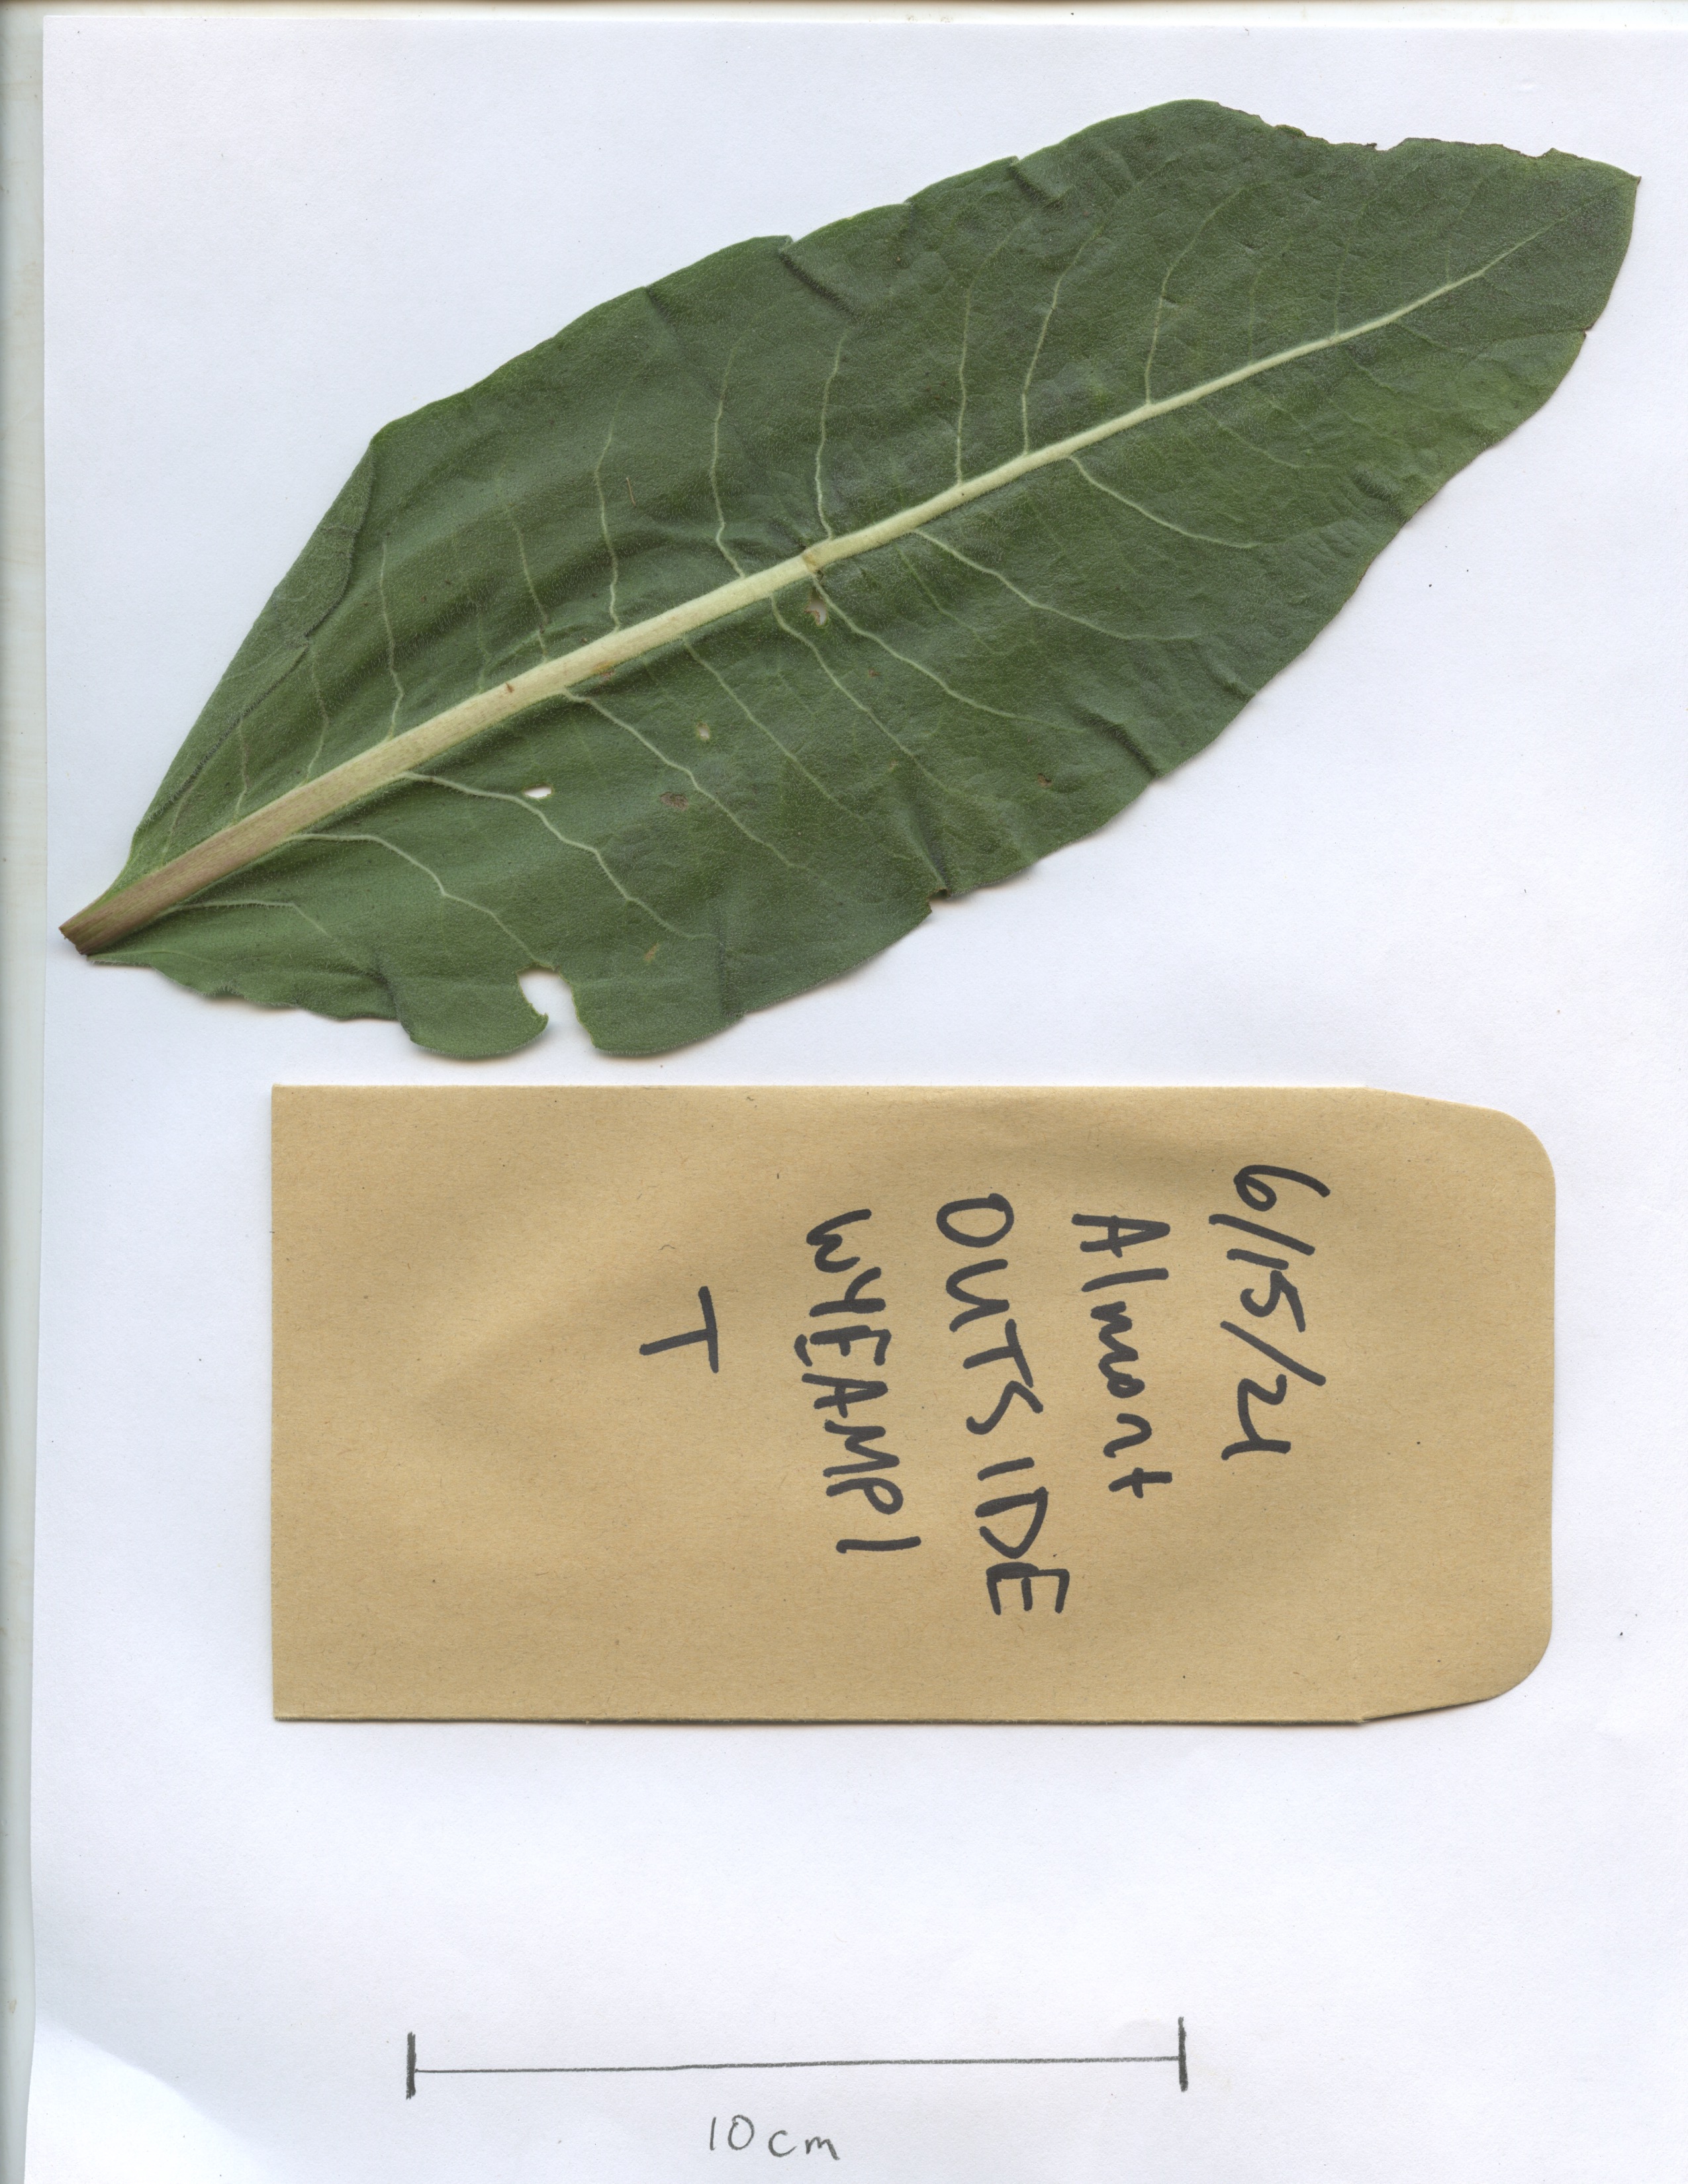 6/15/21
Almont
OUTSIDE
WYEAMPI
T
10cm